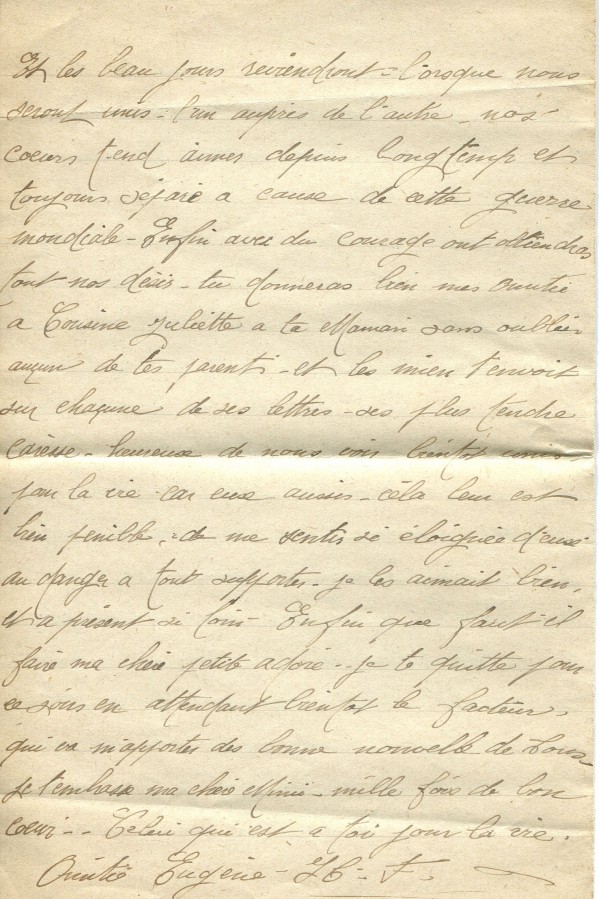 Et les beau jours reviendront - lorsque nous
seront unis - l'un aupres de l'autre - nos
coeurs t-end aimer depuis longtemp et
toujours séparé a cause de cette guerre
mondiale - Enfin avec du courage ont attiendras
tout nos désir - tu donneras bien mes amitié
a Cousine Juliette a ta Maman sans oublier
auqun de tes parent - et les mien t'envoit
sur chaqune de ses lettres - ses plus tendre
caresse - heureuse de nous voir bientot unis
pour la vie car eux aussis - céla leur est
bien penible, - de me sentir si éloignée d'eux
au danger a tout supporter - je les aimait bien,
et a présent si loin - Enfin que faut-il
faire ma chère petite adoré -- Je te quitte pour
ce soir en attendant bientot le facteur,
qui va m'apporter des bonne nouvelle de tous -
Je t'embrasse ma chère Mimi - mille fois de bon
coeur -- Celui qui est a toi pour la vie.
Amitié Eugène - H - F.